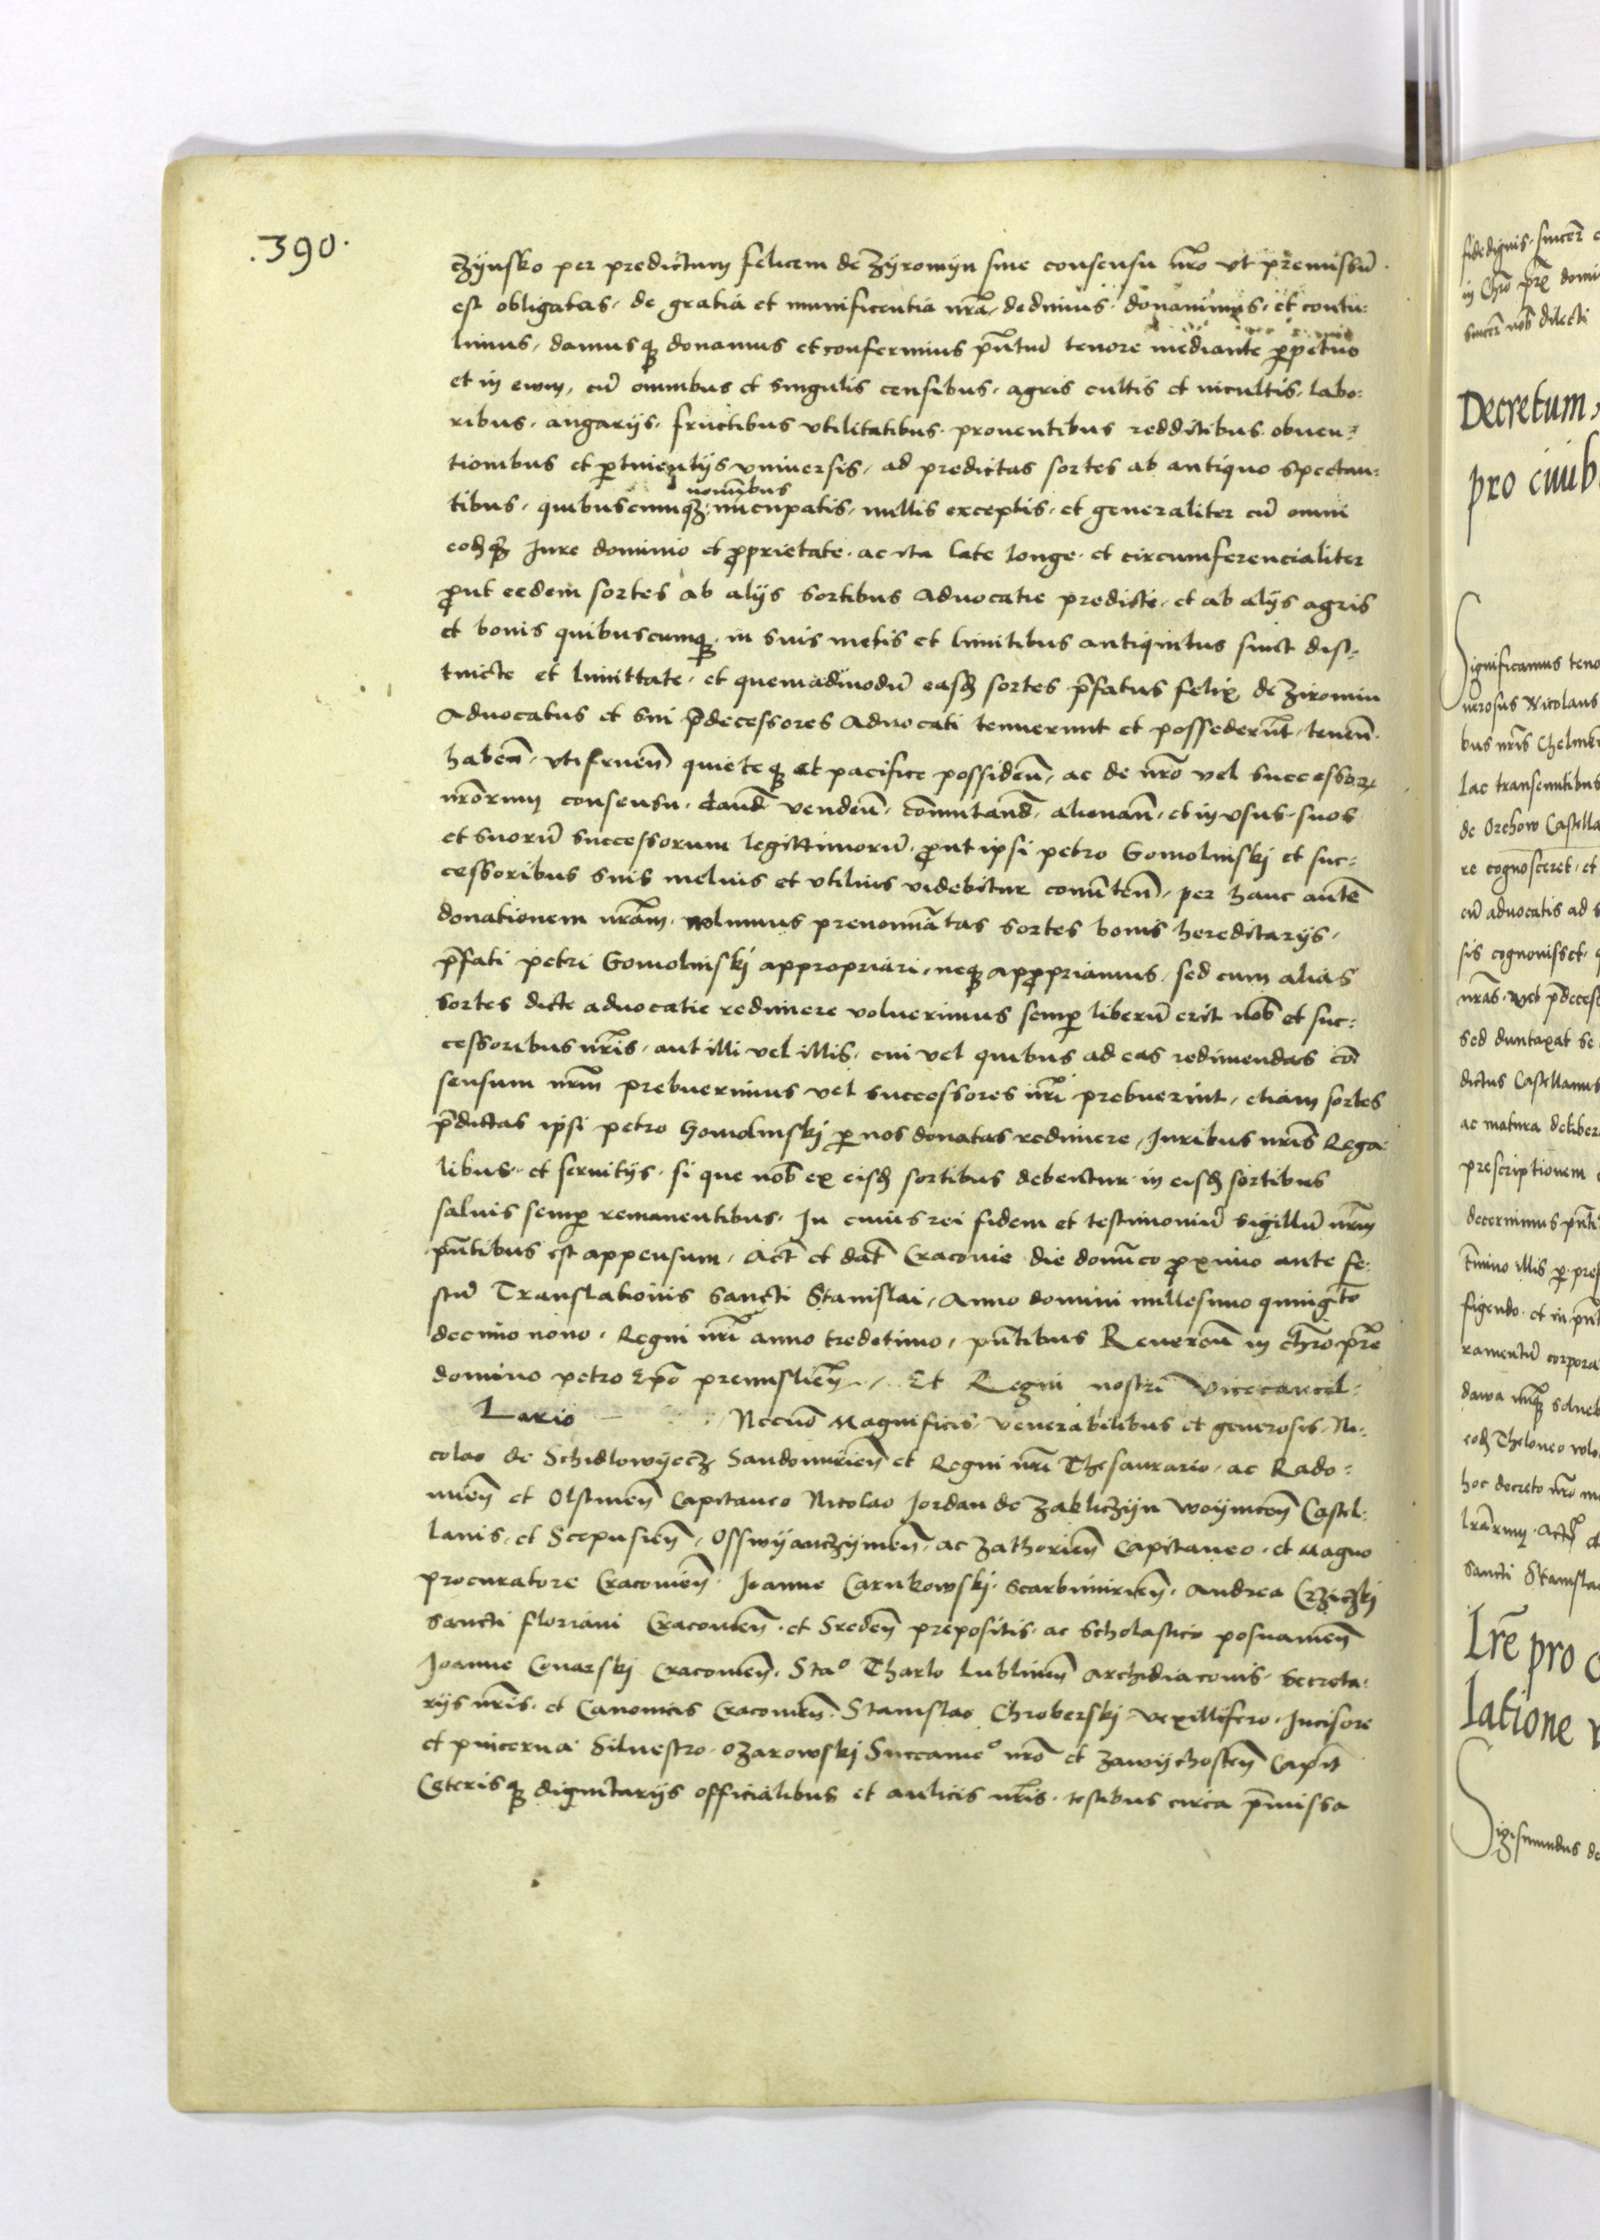 .390.
czynsko per predictum felicem de Zyromyn sine consensu nr̄o vt premissū
est obligatas, de gratia et munificentia nr̄a, dedimus, donauimus, et contu:
limus, damusq3 donamus et conferimus pn̄tiū tenore mediante ꝑpetuo
et in ewm, cū omnibus et singulis censibus, agris cultis et incultis, labo:
ribus, angarijs, fructibus vtilitatibus, prouentibus redditibus obuen:
tionibus et ꝑtinentijs vniuersis, ad predictas sortes ab antiquo spectan:
nominibus
tibus, quibuscumq3 nuncupatis, nullis exceptis, et generaliter cū omni
eoru3 Iure dominio et ꝓprietate, ac ita late longe, et circumferencialiter
ꝓut eedem sortes ab alijs sortibus aduocatie predicte, et ab alijs agris
et bonis quibuscumq3, in suis metis et limitibus antiquitus sunt dis:
tincte et limittate, et quemadmodū easd3 sortes p̄fatus felix de Ziromin
Aduocatus et sui p̄decessores Aduocati tenuerunt et possederūt, tenen̄
haben̄, vtifruen̄ quieteq3 et pacifice possiden̄, ac de nr̄o vel successorꝝ
nr̄orum consensu, dand̄ venden̄, com̄utand̄, alienan̄, et in vsus suos
et suorū successorum legittimorū, ꝓut ipsi petro Gomolinskj et suc:
cessoribus suis melius et vtilius videbitur conuerten̄, per hanc autē
donationem nr̄am, nolumus prenominātas sortes bonis hereditarijs,
p̄fati petri Gomolinskj appropriari, neq3 apꝓpriamus, sed cum alias
sortes dicte aduocatie redimere voluerimus semꝑ liberū erit nob̄ et suc:
cessoribus nr̄is, aut illi vel illis, cui vel quibus ad eas redimendas cō
sensum nr̄m prebuerimus vel successores nr̄i prebuerint, etiam sortes
p̄dictas ipsi petro Gomolinskj ꝑ nos donatas redimere, Iuribus nr̄is Rega
libus, et seruitijs, si que nob̄ ex eisd3 sortibus debentur in eisd3 sortibus
saluis semꝑ remanentibus, In cuius rei fidem et testimoniū sigillū nr̄m
pn̄tibus est appensum, Act̄ et dat̄ Cracouie die domīco ꝓximo ante fe:
stū Translationis sancti Stanislai, Anno domini millesimo quingēto
decimo nono, Regni nr̄i anno tredetimo, pn̄tibus Reueren̄ in chr̄o pr̄e
domino petro Ep̄o premislien̄, Et Regni nostri Vicecancel:
Lario Necnō Magnificis, venerabilibus et generosis, Ni:
colao de Schidlowyecz Sandomirien̄ et Regni nr̄i Thesaurario, ac Rado:
mien̄ et Olstinen̄ Capitaneo Nicolao Jordan de Zakliczyn Woynicen̄ Castel:
lanis, et Scepusien̄, Osswyanczymen̄, ac Zathorien̄ Capitaneo, et Magno
procuratore Cracouien̄, Joanne Carnkowski, Scarbimirien̄, Andrea Crziczkj
sancti floriani Cracouien̄, et Sreden̄ prepositis, ac scholastico posnanien̄
Joanne Conarskj Cracouien̄, Stao Tharlo lublinen̄ Archidiaconis, Secreta:
rijs nr̄is, et Canonicis Cracouien̄, Stanislao Chroberskj Vexillifero, Incisore
et pincerna Siluestro Ozarowskj Succameo nr̄o et Zawychosten̄ Capit̄
Ceterisq3 dignitarijs officialibus et aulicis nr̄is, testibus circa p̄missa
fidedignis, sincer
in Chro pr̄e domi
sincer̄ nob̄ dilecti
Decretum
pro ciuib
Significamus teno
nerosus Nicolaus
bus nr̄is Chelmen̄
lac transeuntibus
de Orchow Castella
re cognosceret, et
cū aduocatis ad s
sis cognouisset,
nr̄as, p̄decess
sed duntaxat se
dictus Castellanus
ac matura deliber
prescriptionem
decernimus pn̄ti
illis ꝑ pres
figendo, et in pn̄t
ramentū corpora
eod3 Theloneo
hoc decreto nr̄o
sancti Stanisla
Lr̄e pro
latione
Sigismundus de